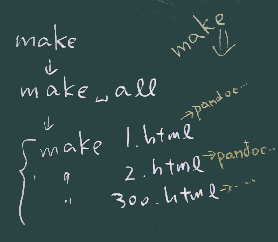 make
↓
make␣all
↓
make 1.html → pandoc...
〃 〃 2.html → pandoc...
〃 300.html → ....
make
↓